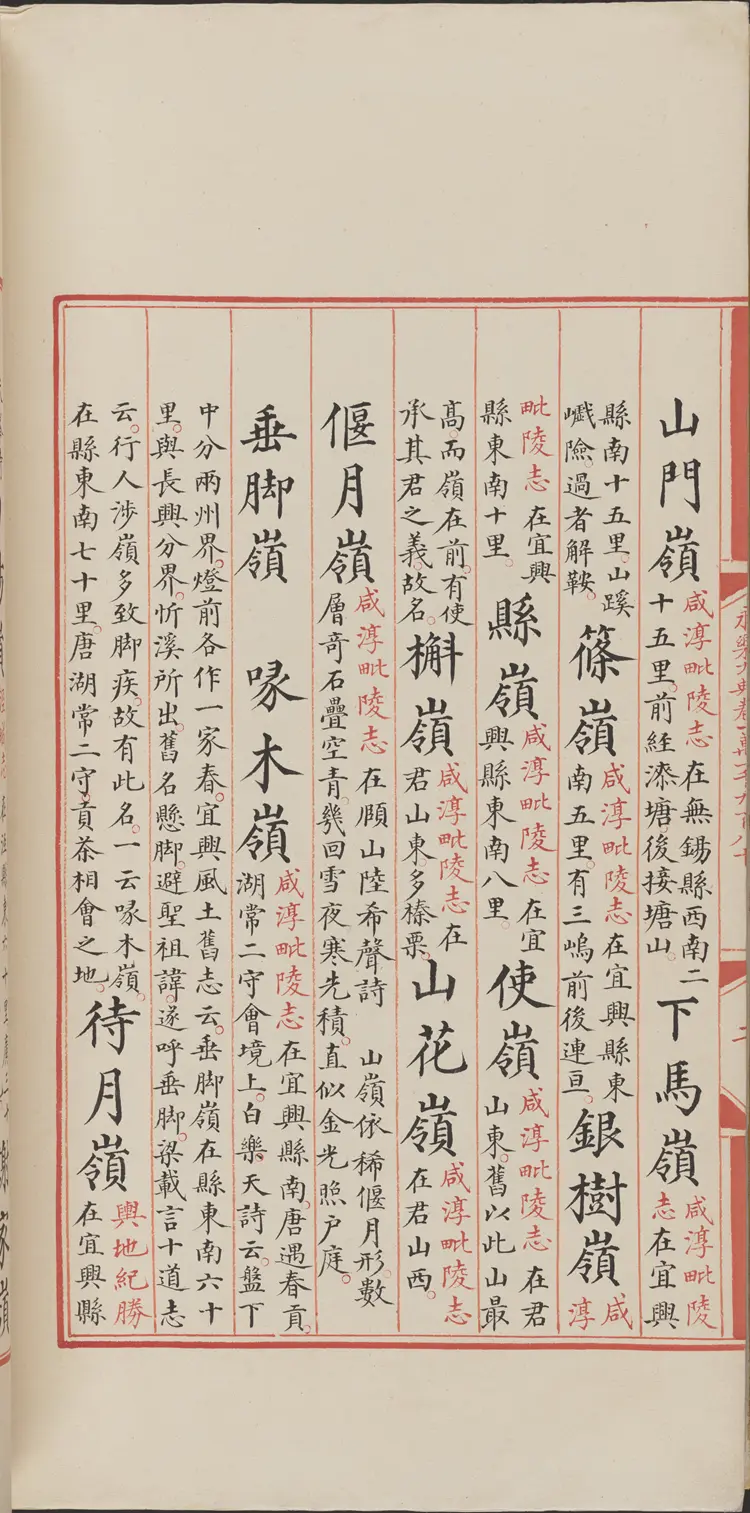 永樂大典卷一萬一千九百八十
二
山門嶺
咸淳毗陵志在無錫縣西南二
十五里。前經漆塘。後接塘山。
下馬嶺
咸淳毗陵
志在宜興
縣南十五里。山蹊
巇險。過者解鞍。
篠嶺
咸淳毗陵志在宜興縣東
南五里。有三嵨前後連亘。
銀樹嶺
咸
淳
毗陵志在宜興
縣東南十里。
縣嶺
咸淳毗陵志在宜
興縣東南八里。
使嶺
咸淳毗陵志在君
山東。舊以此山最
高。而嶺在前。有使
承其君之義。故名。
槲嶺
咸淳毗陵志在
君山東多榛栗。
山花嶺
咸淳毗陵志
在君山西。
偃月嶺
咸淳毗陵志 在頋山陸希聲詩 山嶺依稀偃月形。數
層竒石疊空青。幾回雪夜寒先積。直似金光照戶庭。
垂脚嶺 啄木嶺
咸淳毗陵志在宜興縣南。唐遇春貢。
湖常二守會境上。白樂天詩云。盤下
中分兩州界。燈前各作一家春。宜興風土舊志云。垂脚嶺在縣東南六十
里。與長興分界。忻溪所出。舊名懸脚。避聖祖諱。遂呼垂脚。梁載言十道志
云。行人涉嶺多致脚疾。故有此名。一云啄木嶺。
在縣東南七十里。唐湖常二守。貢茶相會之地。
待月嶺
輿地紀勝
在宜興縣